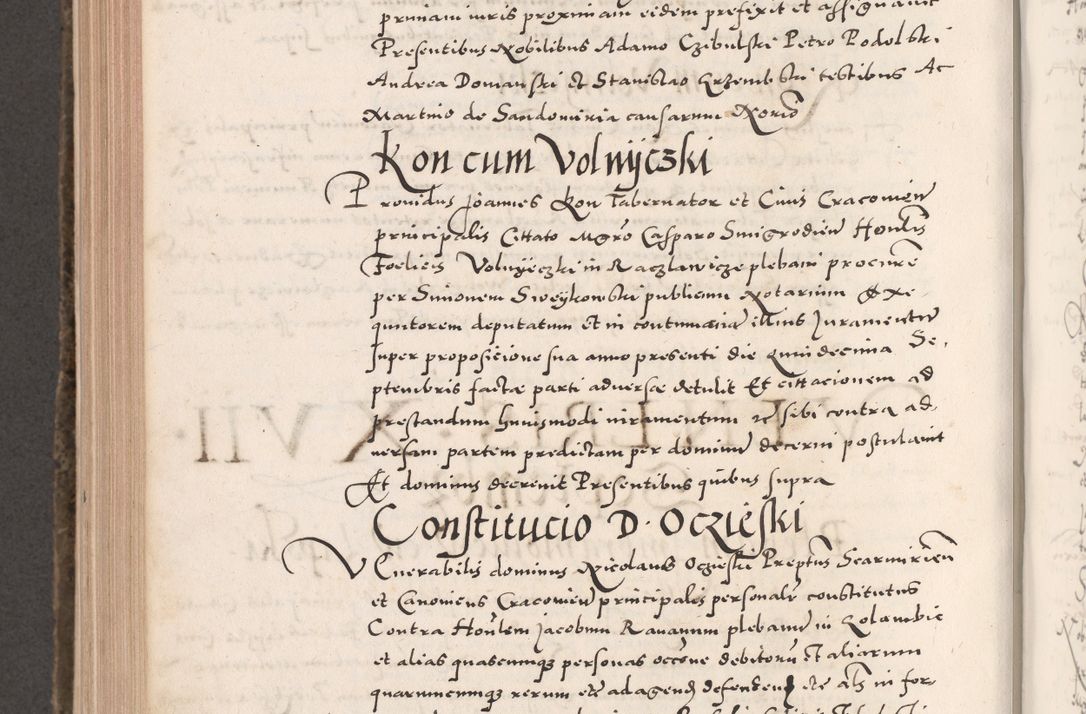 primam iuris proximam eidem prefixit et assignavit
Presentibus Nobilibus Adamo Czibulski Petro Podolski
Andrea Domanski et Stanislao Grzembski testibus Ac
Martino de Sandomiria causarum Norio
Kon cum Volnyczski
Providus Joannes Kon Tabernator et Civis Cracovien
principalis Cittato Mgro Casparo Smigrodien Honlis
Foelicis Volnyeczki in Raczlawicze plebani procure
per Simonem Sweykowski publicum Notarium Exe-
quutorem deputatum Et in contumacia illius Juramentum
super propositione sua anno presenti die quindecima Se-
ptembris factae parti adversae detulit Et cittacionem ad
prestandum huiusmodi iuramentum re sibi contra ad-
versam partem predictam per dominum decerni postulavit
Et dominus decrevit Presentibus quibus supra
Constitucio D. Oczieski
Venerabilis dominus Nicolaus Oczieski Preptus Scarmirien
et Canonicus Cracovien principalis personalr constitutus
Contra Honlem Jacobum Ravanum plebanum in
et alias quascumque personas occone debitorum Et aliarum
quarumcumque rerum etc ad agend defendend etc als in for-